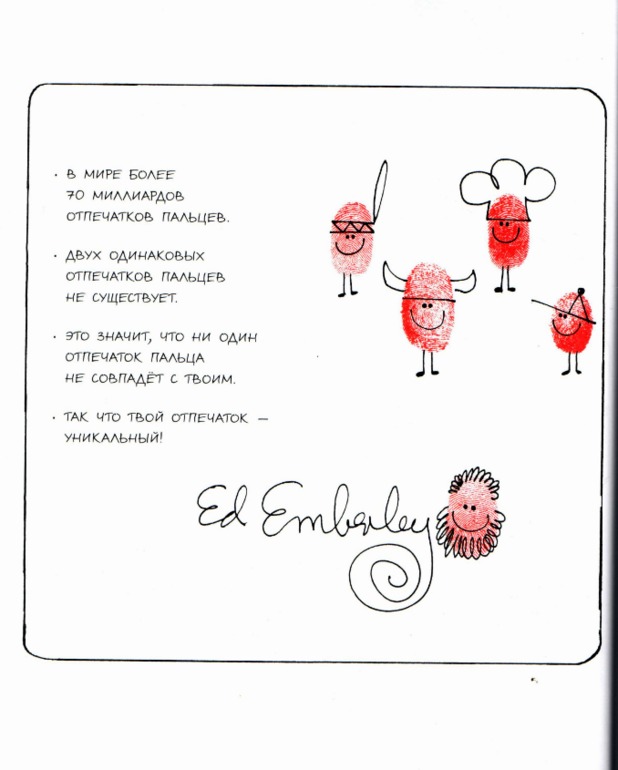 · В МИРЕ БОЛЕЕ
70 МИЛЛИАРДОВ
ОТПЕЧАТКОВ ПАЛЬЦЕВ.
· ДВУХ ОДИНАКОВЫХ
ОТПЕЧАТКОВ ПАЛЬЦЕВ
НЕ СУЩЕСТВУЕТ.
· ЭТО ЗНАЧИТ, ЧТО НИ ОДИН
ОТПЕЧАТОК ПАЛЬЦА
НЕ СОВПАДЁТ С ТВОИМ.
· ТАК ЧТО ТВОЙ ОТПЕЧАТОК —
УНИКАЛЬНЫЙ!
Ed Emberley